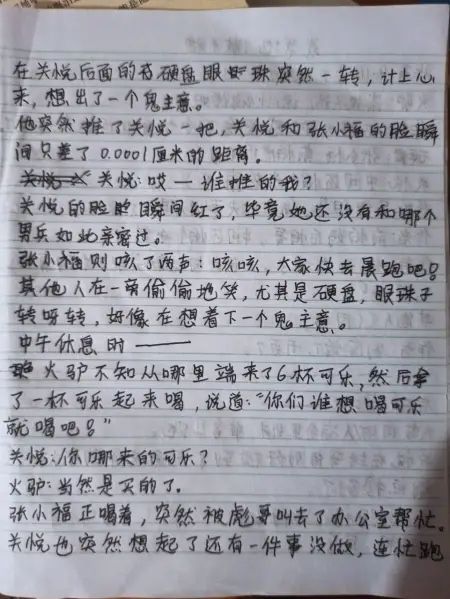 在关悦后面的存硬盘眼珠突然一转，计上心
来，想出了一个鬼主意。
他突然推了关悦一把，关悦和张小福的脸瞬
间只差了0.0001厘米的距离。
关悦：哎——谁推的我？
关悦的脸瞬间红了，毕竟她还没有和哪个
男兵如此亲密过。
张小福则咳了两声：咳咳，大家快去晨跑吧！
其他人在一旁偷偷地笑，尤其是硬盘，眼珠子
转呀转，好像在想着下一个鬼主意。
中午休息时——
火驴不知从哪里端来了6杯可乐，然后拿
了一杯可乐起来喝，说道："你们谁想喝可乐
就喝吧！"
关悦：你哪来的可乐？
火驴：当然是买的了。
张小福正喝着，突然被彪哥叫去了办公室帮忙。
关悦也突然想起了还有一件事没做，连忙跑